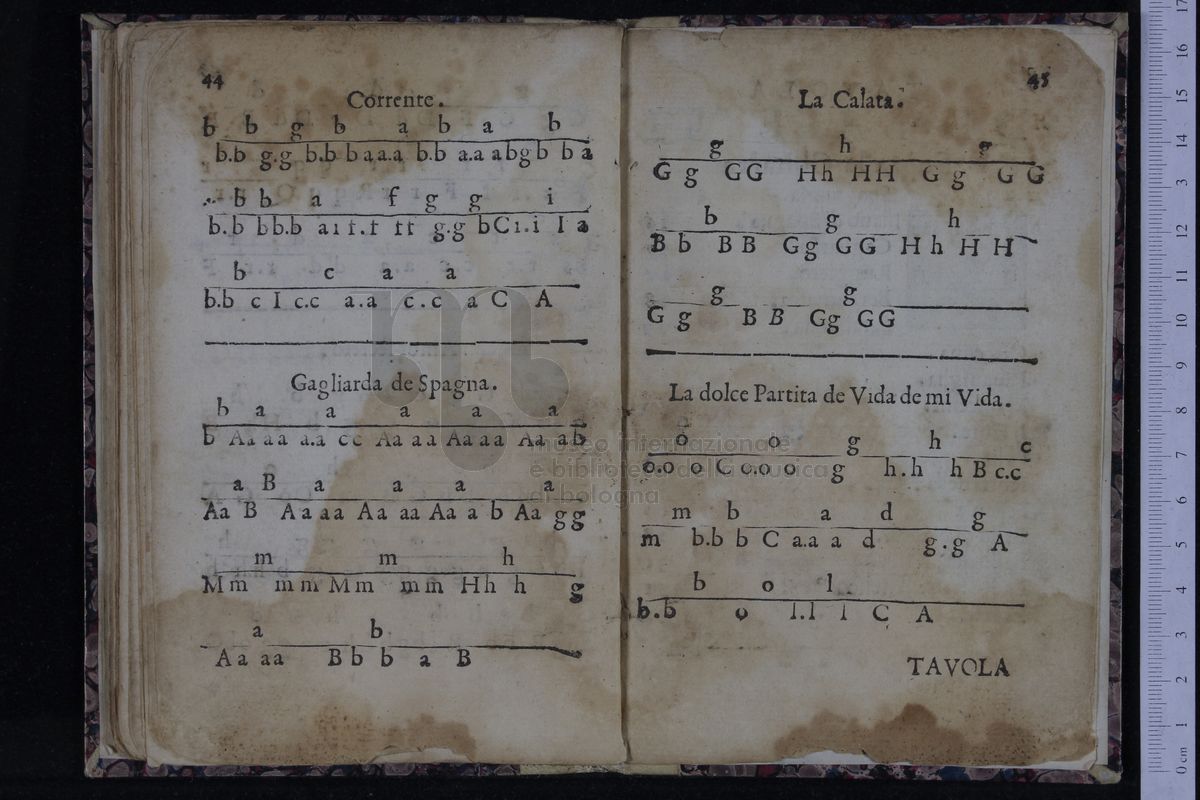 44
Corrente.
b b g b a b a b
b.b g.g b.b b a a.a b.b a.a a b g b b a
b b a f g g i
b.b b b.b a 1 f.f f f g.g b C i.i I a
b c a a
b.b c I c.c a.a c.c a C A
Gagliarda de Spagna.
b a a a a a
b Aa aa a.a cc Aa aa Aa aa Aa ab
a B a a a a
Aa B Aa aa Aa aa Aa a b Aa gg
m m h
Mm mm Mm mm Hh h g
a b
Aa aa Bb b a B
45
La Calata.
g h g
G g GG Hh HH G g G G
b g h
B b BB Gg GG Hh HH
g g
G g B B Gg GG
La dolce Partita de Vida de mi Vida.
o o g h c
o.o o C o.o o g h.h h B c.c
m b a d g
m b.b b C a.a a d g.g A
b o l
b.b o l.l l C A
TAVOLA
museo internazionale
e biblioteca della musica
di bologna
17
16
15
14
13
12
11
10
9
8
7
6
5
4
3
2
1
0 cm